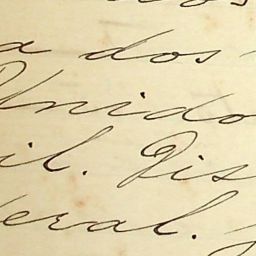 a dos
Unido
il. Dis
eral.